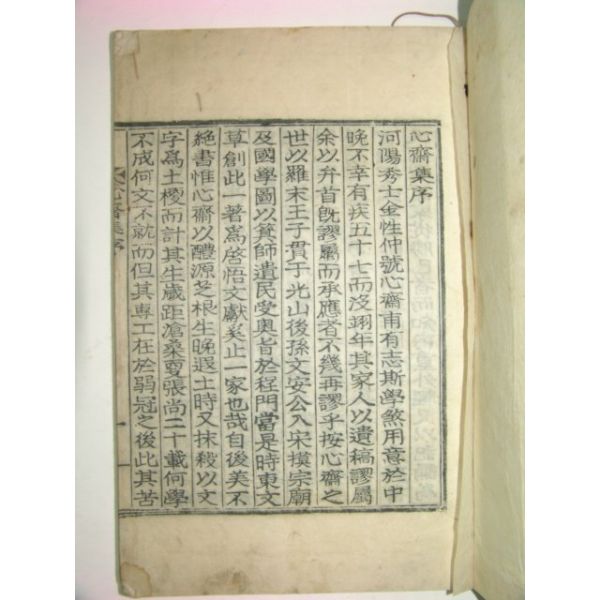 心齋集序
河陽秀士金性仲號心齋甫有志斯學煞用意於中
晚不幸有疾五十七而沒翊年其家人以遺稿謬屬
余以弁首旣謬屬而承應者不幾再謬乎按心齋之
世以羅末王子貫于光山後孫文安公入宋摸宗廟
及國學圖以箕師遺民受奧旨於程門當是時東文
草創此一著爲啓悟文獻奚止一家也哉自後美不
絶書惟心齋以醴源芝根生晚遐土時又抹殺以文
字爲土稷而計其生歲距滄桑戞張尙二十載何學
不成何文不就而但其專工在於弱冠之後此其苦
心齋集序
一